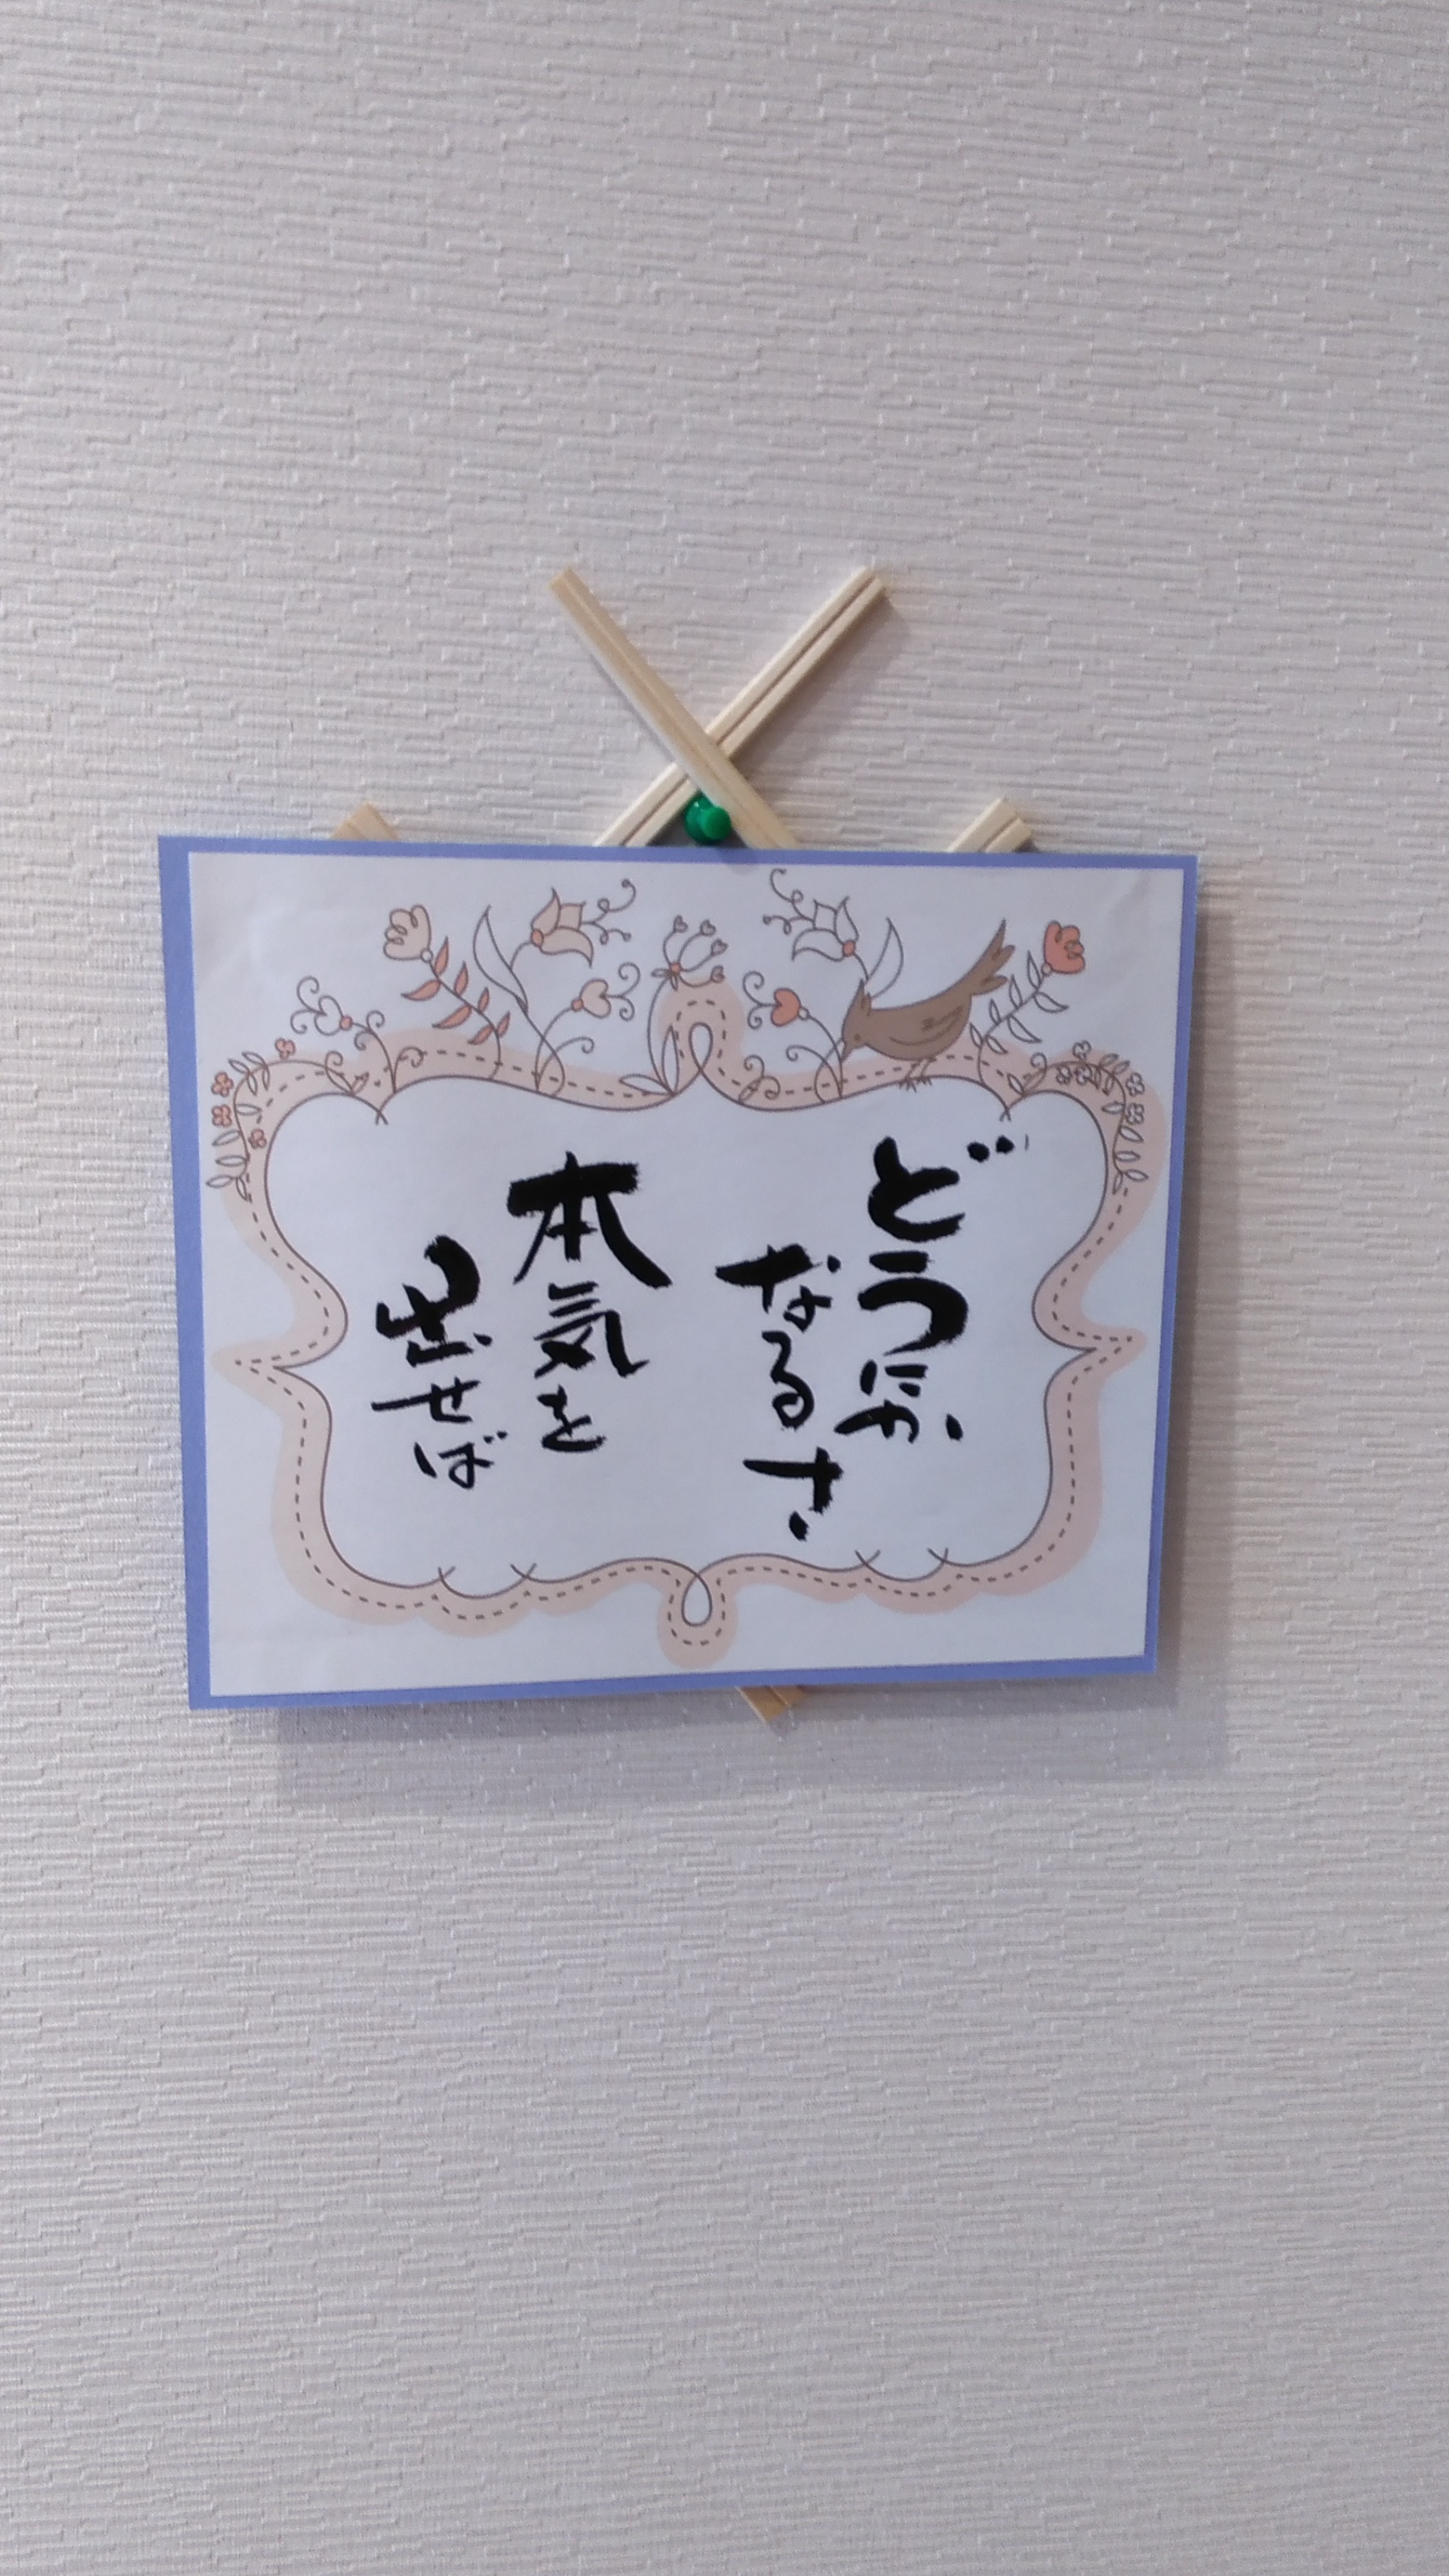 どうにか
なるさ
本気を
出せば